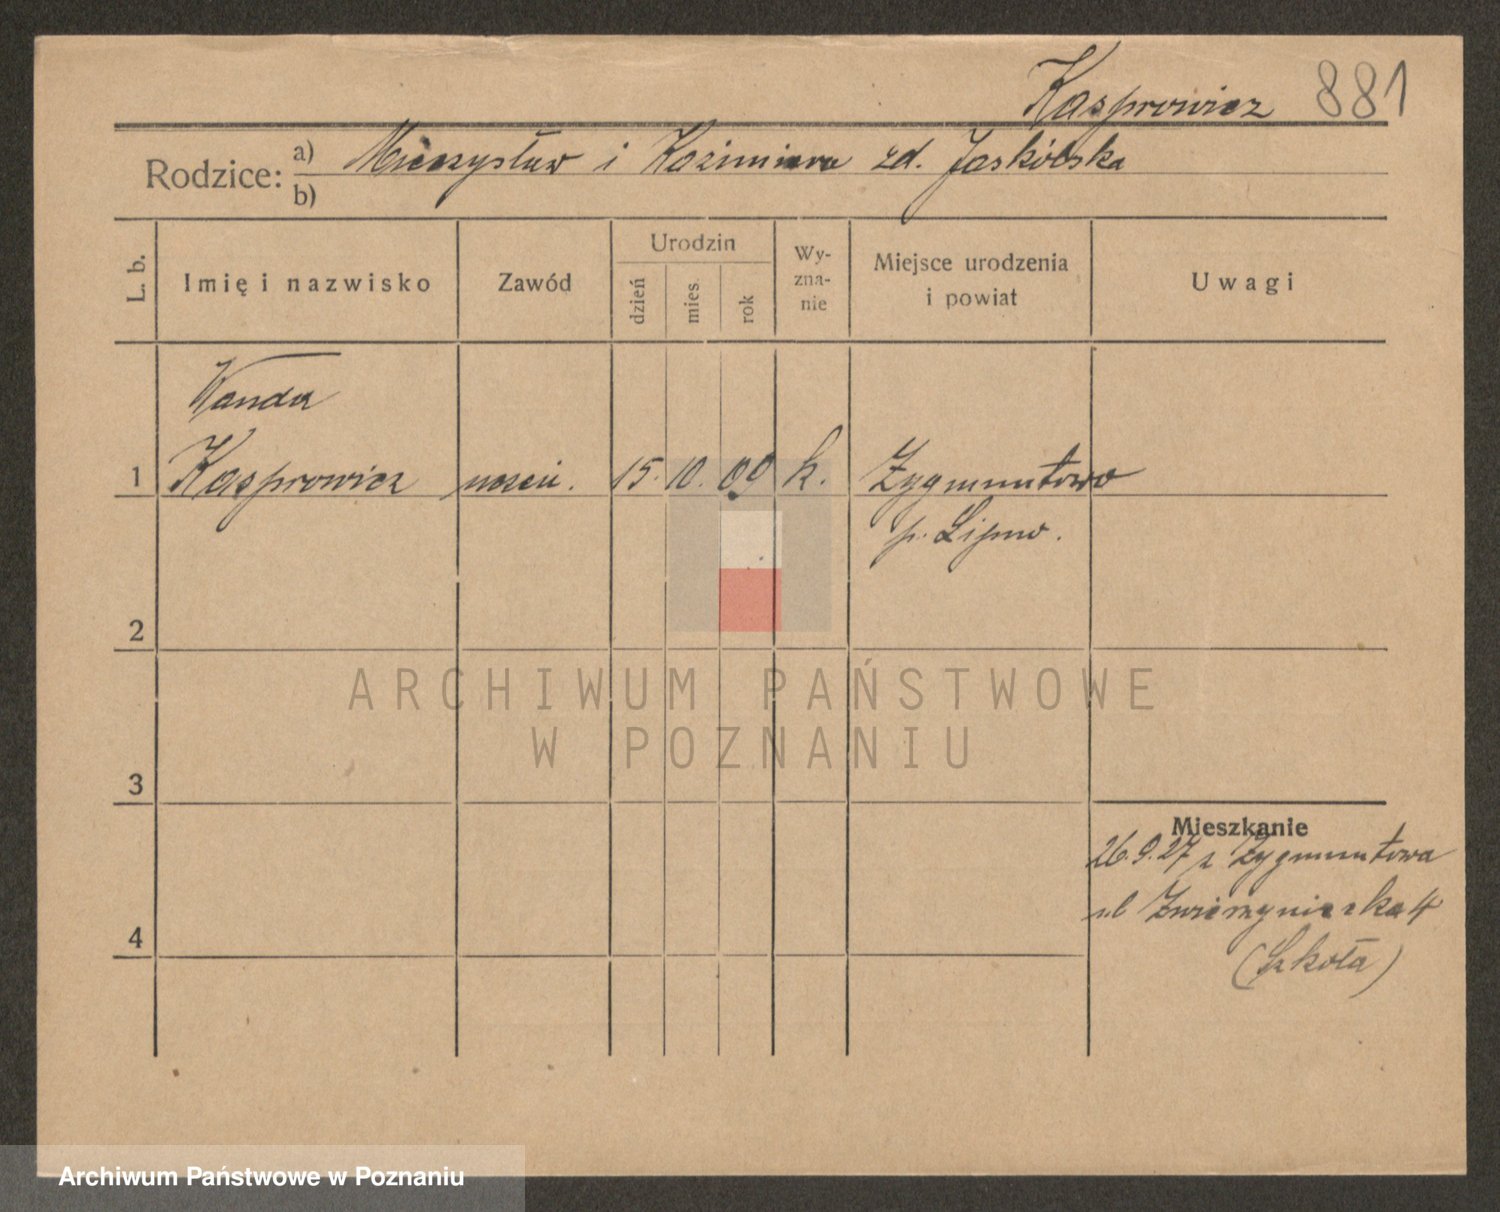 Kasprowicz 881
Rodzice: a) Mieczysław i Kazimiera zd. Jaskólska
b)
L. b. Imię i nazwisko Zawód Urodzin dzień mies. rok Wy-zna-nie Miejsce urodzenia i powiat Uwagi
Wanda
1 Kasprowicz uczen. 15. 10. 09 k. Zygmuntowo
p. Lipno.
2
3
Mieszkanie
26.9.27 z Zygmuntowa
ul Zwierzyniecka 4
4
(Szkoła)
ARCHIWUM PAŃSTWOWE
W POZNANIU
Archiwum Państwowe w Poznaniu